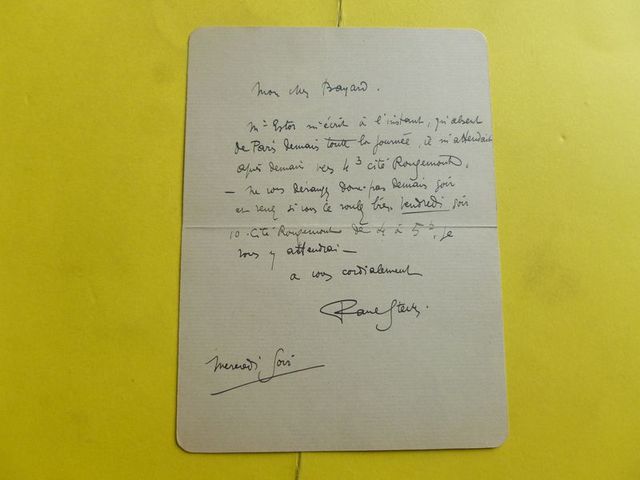 Mon cher Bayard.
Mr Estos m'écrit à l'instant, qu'absent
de Paris demain toute la journée, il m'attendait
après demain vers 4 h cité Rougemont.
— ne vous dérangez donc pas demain soir
et venez si vous le voulez bien vendredi soir
10. Cité Rougemont de 4 à 5 h, je
vous y attendrai —
a vous cordialement
mercredi soir